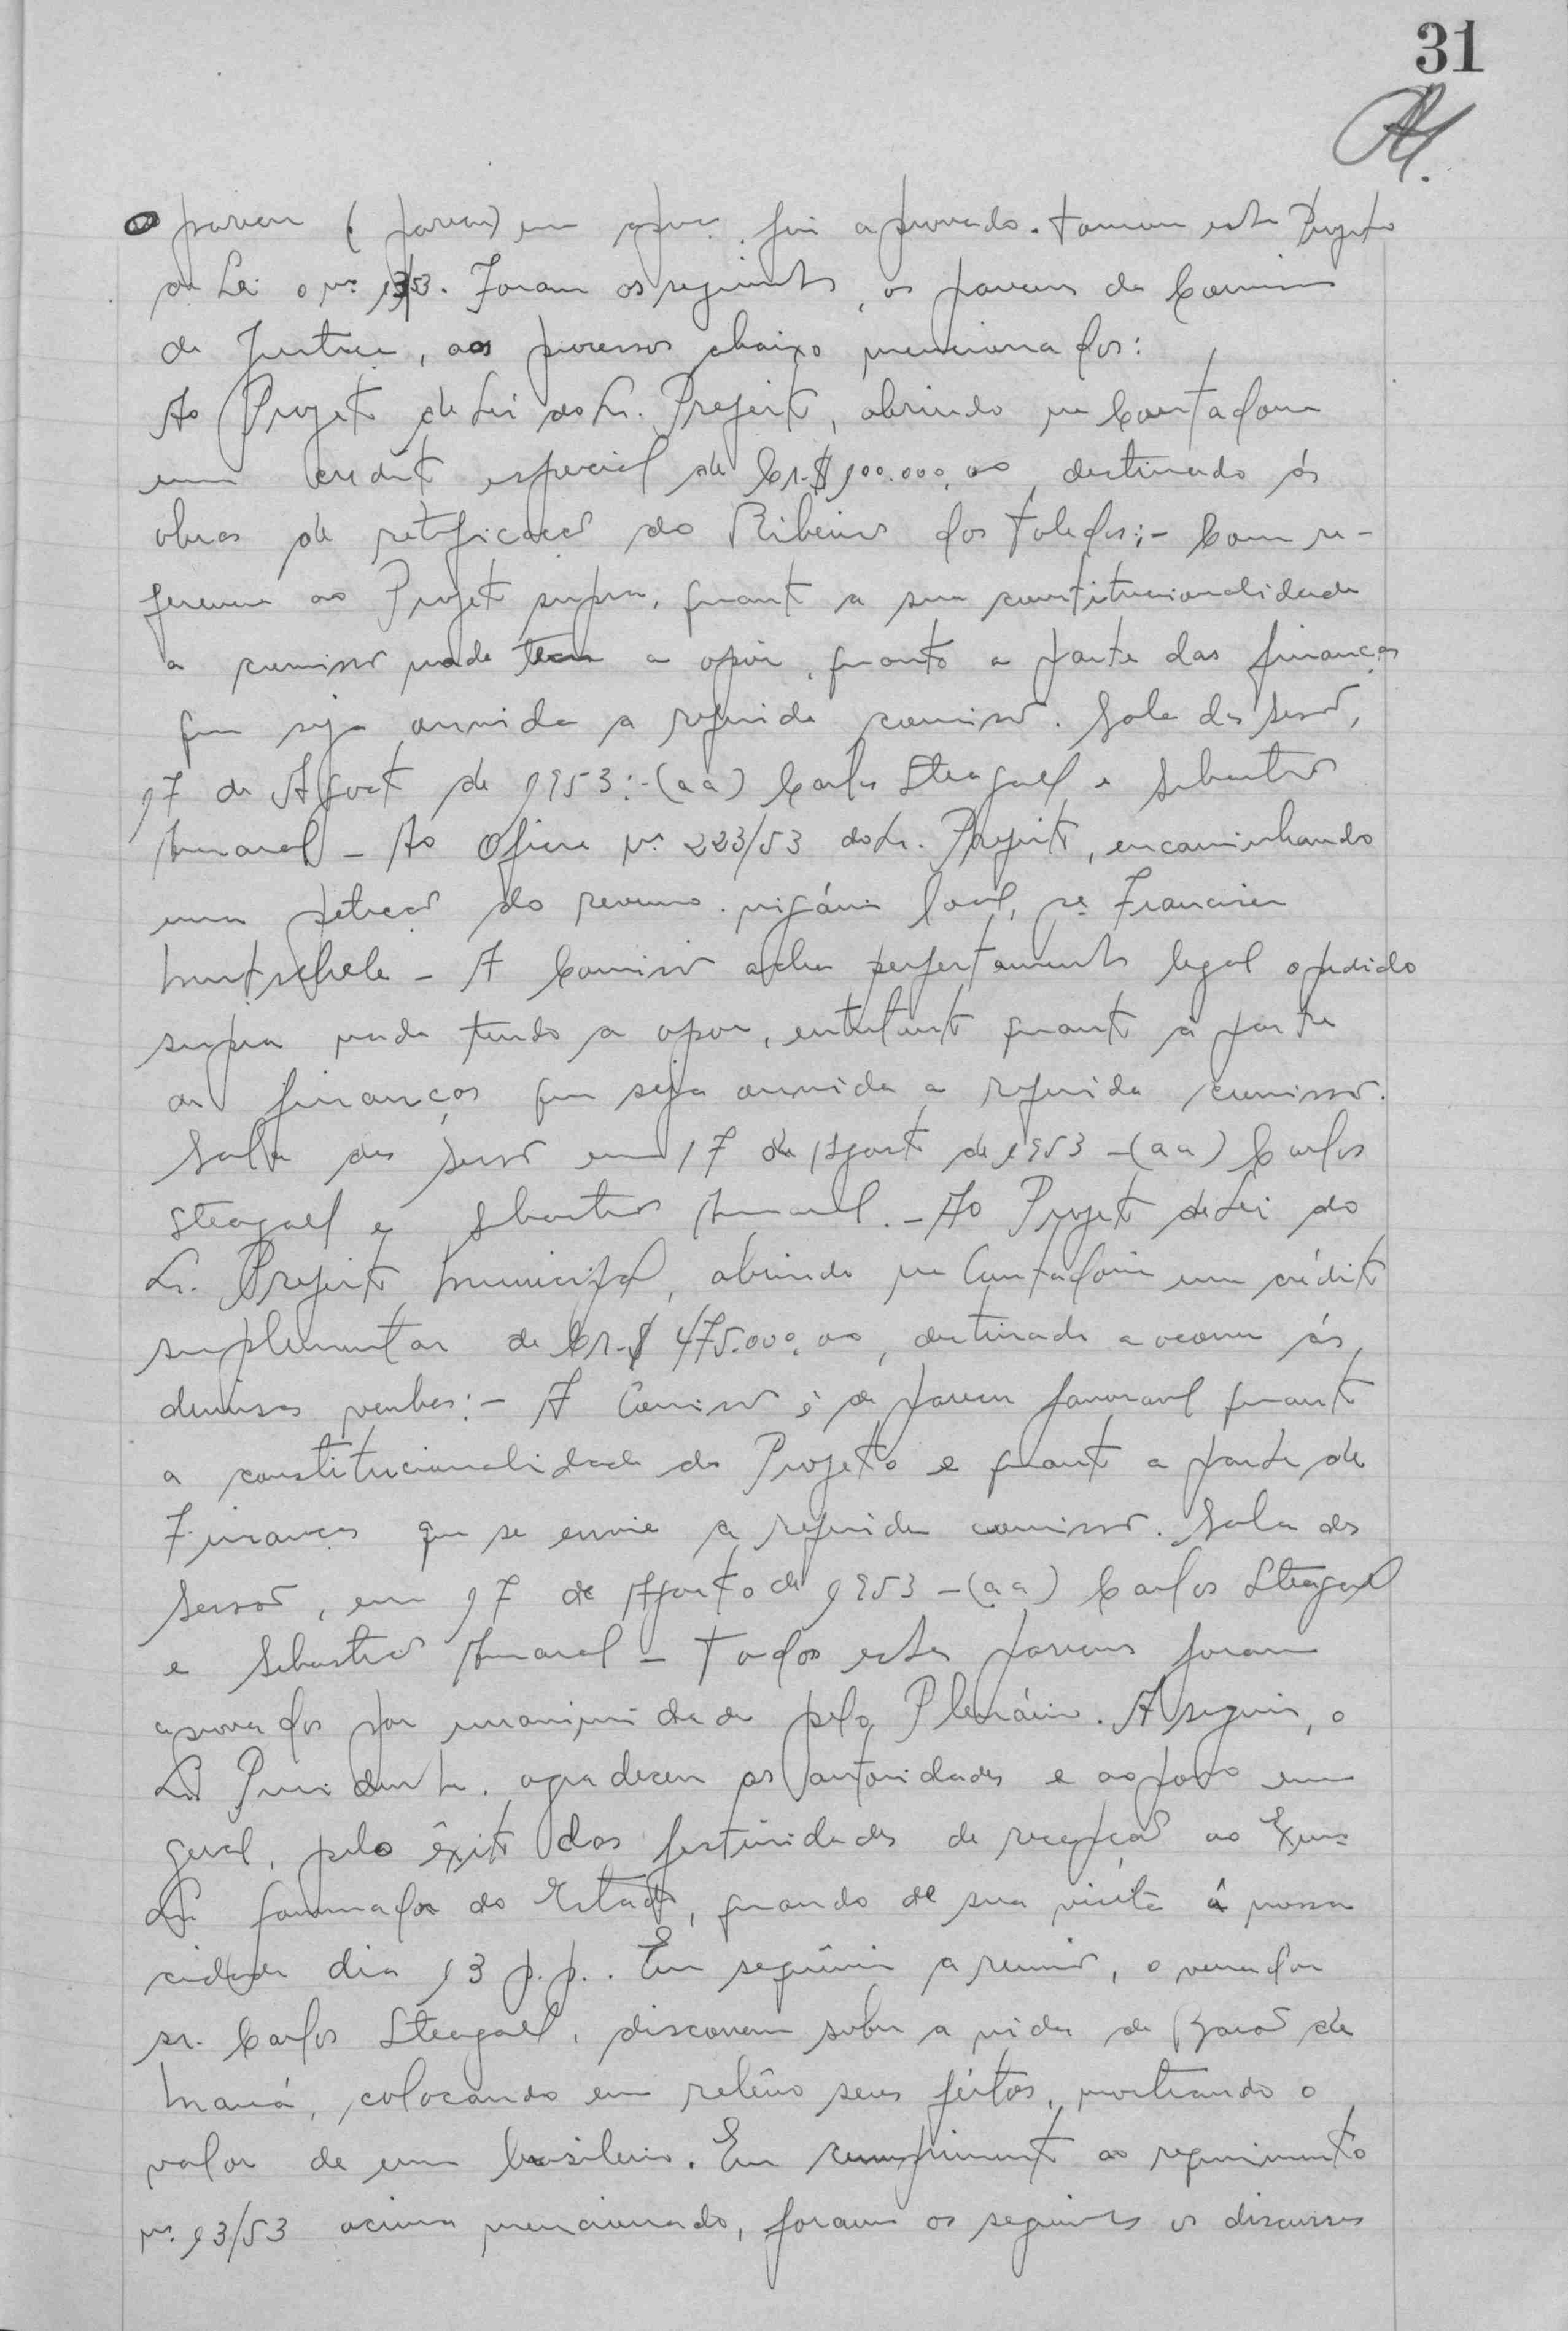 31
o parecer (parecer) em foi aprovado. Tomou este Projeto
de Lei o nº 153. Foram os seguintes, os pareceres da Comissão
de Justiça, aos processos abaixo mencionados:
Ao Projeto de Lei do Sr. Prefeito, abrindo na Contadoria
um credito especial de Cr.$ 100.000,00, destinado ás
obras de retificação do Ribeirão dos Toledos:- Com re-
ferencia ao Projeto supra, quanto a sua constitucionalidade
a comissão nada tem a opôr, quanto a parte das finanças
que seja ouvida a referida comissão. Sala das Sessões,
17 de Agosto de 1953:-(aa) Carlos Steagall e Sebastião
Amaral - Ao Oficio nº 223/53 do Sr. Prefeito, encaminhando
uma petição do revmo. vigário local, pe Francisco
- A Comissão acha perfeitamente legal o pedido
supra nada tendo a opor, entretanto quanto á parte
de finanças que seja ouvida a referida comissão.
Sala das Sessões em 17 de Agosto de 1953 -(aa) Carlos
Steagall e Sebastião Amaral. - Ao Projeto de Lei do
Sr. Prefeito Municipal, abrindo na Contadoria um crédito
suplementar de Cr.$ 475.000,00, destinado a ocorrer ás
diversas verbas:- A Comissão é de parecer favoravel quanto
a constitucionalidade do Projeto e quanto a parte de
Finanças que se envie a referida comissão. Sala das
Sessões, em 17 de Agosto de 1953 -(aa) Carlos Steagall
e Sebastião Amaral - Todos estes pareceres foram
aprovados por unanimidade pelo Plenário. A seguir, o
Sr. Presidente, agradeceu as autoridades e ao povo em
geral, pelo êxito das festividades de recepção ao Exmo
Sr. Governador do Estado, quando de sua visita á nossa
cidade dia 13 p.p.. Em seguimento a reunião, o vereador
sr. Carlos Steagall, discorreu sobre a vida de Barão de
Mauá, colocando em relêvo seus feitos, mostrando o
valor de um brasileiro. Em cumprimento ao requerimento
nº 13/53 acima mencionado, foram os seguintes os discursos